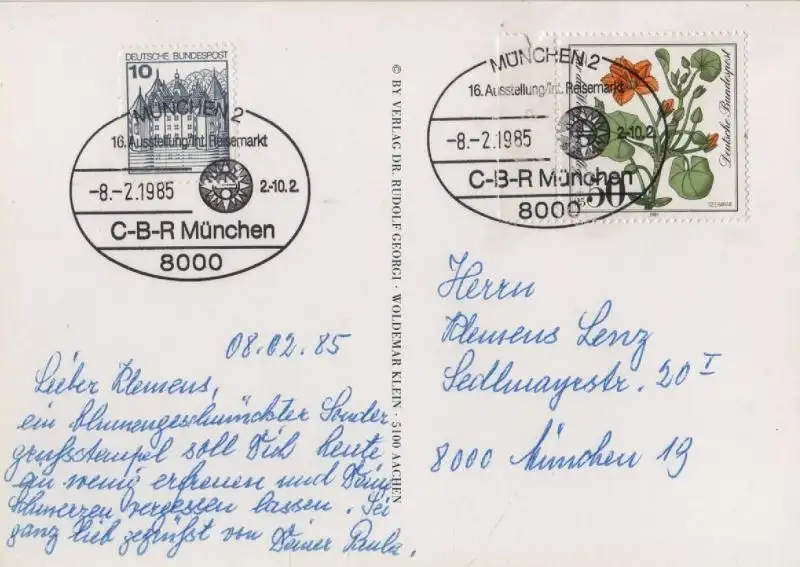 DEUTSCHE BUNDESPOST
10
MÜNCHEN 2
16. Ausstellung/Int. Reisemarkt
-8.-2.1985
2.-10.2.
C-B-R München
8000
MÜNCHEN 2
16. Ausstellung/Int. Reisemarkt
-8.-2.1985
2.-10.2.
C-B-R München
8000
50
Deutsche Bundespost
© BY VERLAG DR. RUDOLF GEORGI · WOLDEMAR KLEIN · 5100 AACHEN
08.02.85
Lieber Klemens,
ein blumengeschmückter Sonder
grußstempel soll Dich heute
ein wenig erfreuen und Deine
Schmerzen vergessen lassen. Sei
ganz lieb gegrüßt von Deiner Paula.
Herrn
Klemens Lenz
Sedlmayrstr. 20 I
8000 München 19